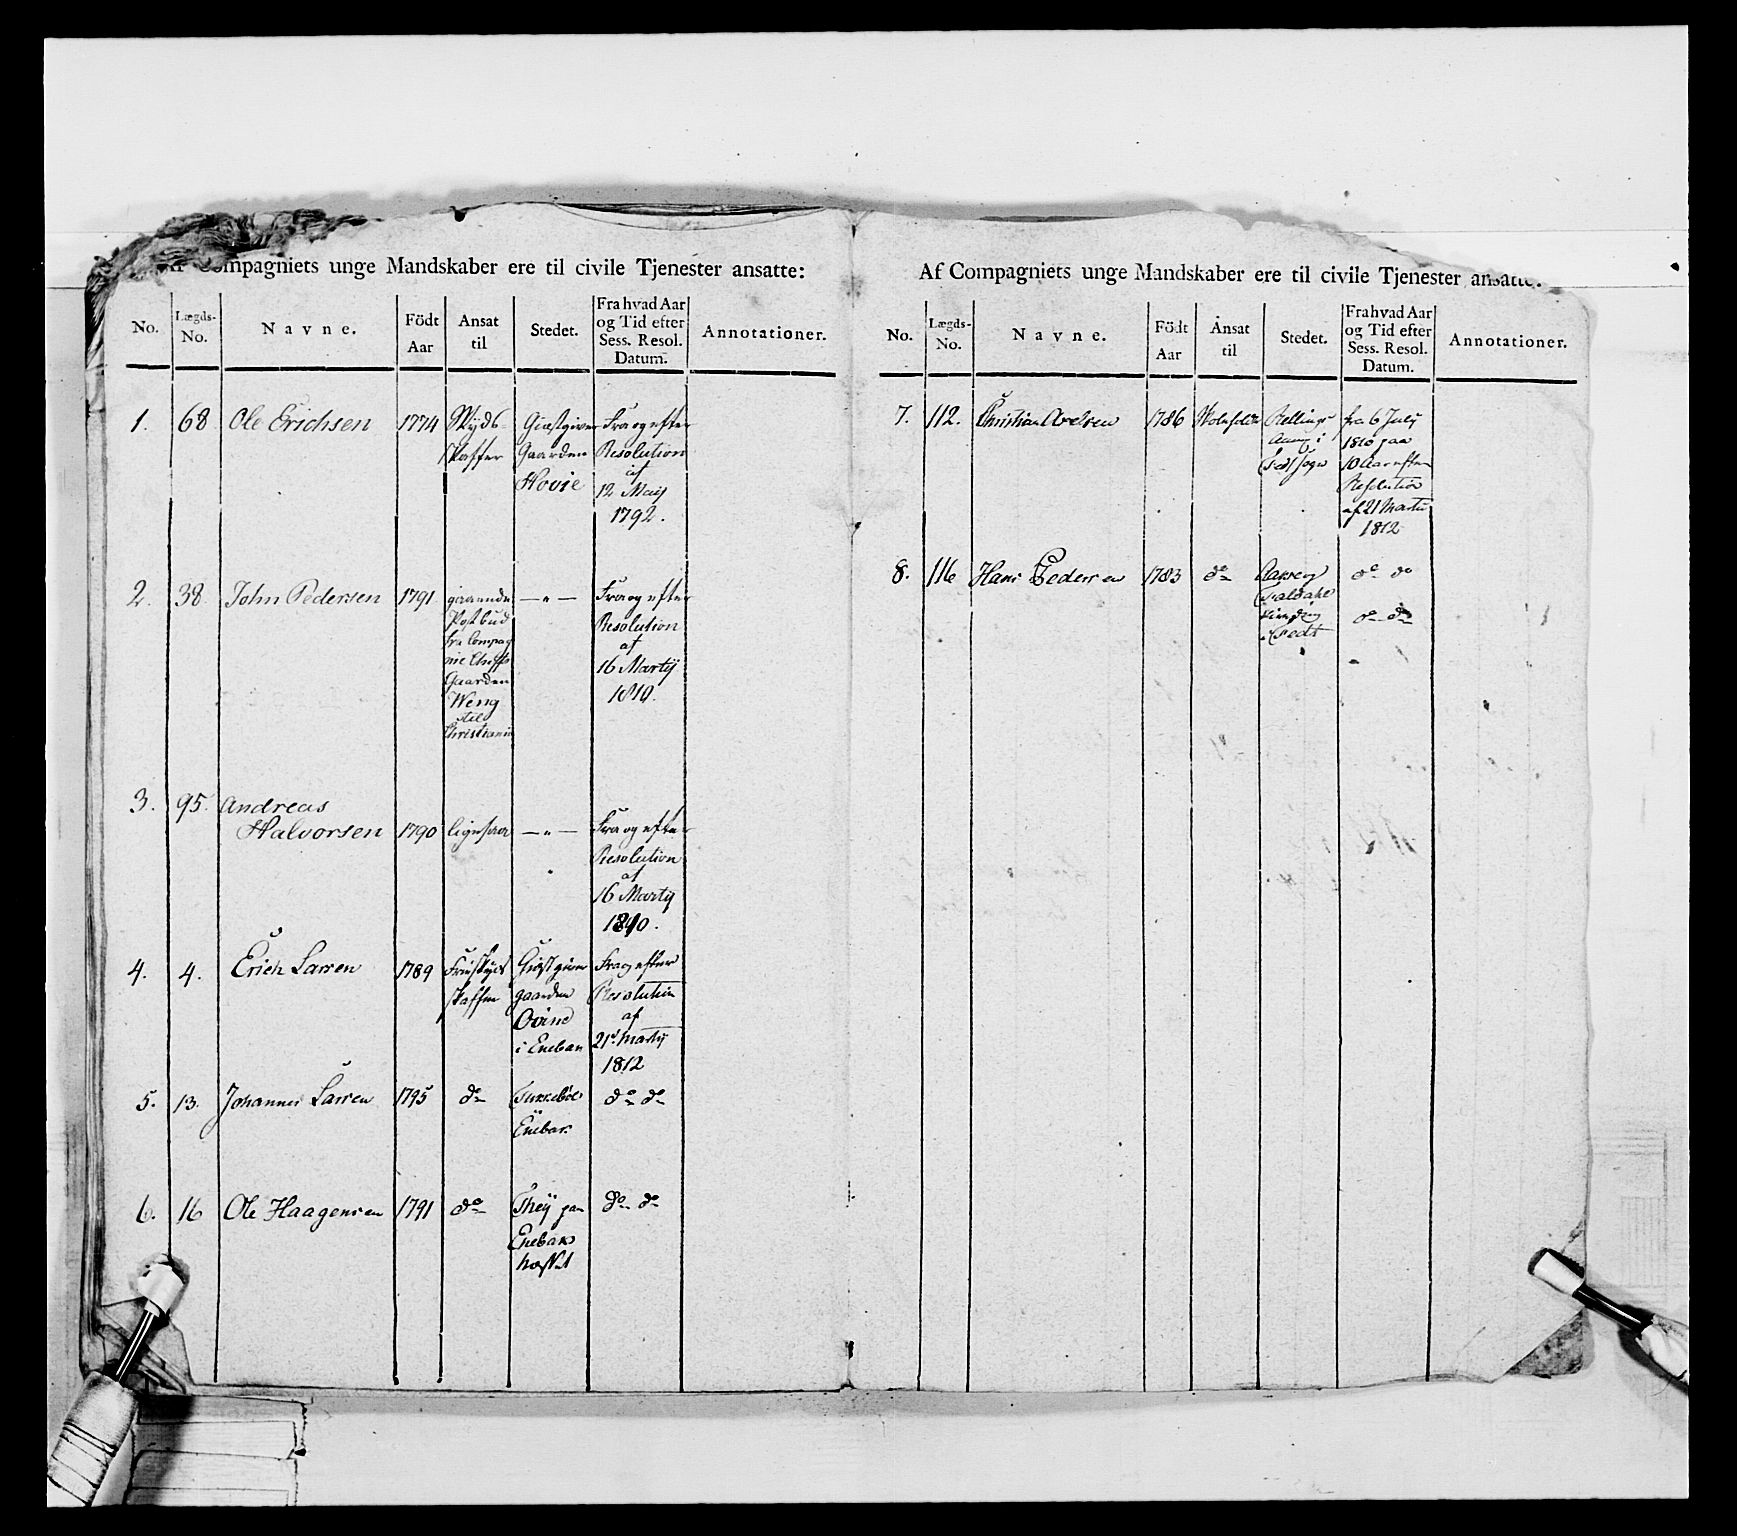 Af Compagniets unge Mandskaber ere til civile Tjenester ansatte:
No.
Lægds-
No.
Navne.
Födt
Aar
Ansat
til
Stedet.
Fra hvad Aar
og Tid efter
Sess. Resol.
Datum.
Annotationer.
1.
68
Ole Erichsen
1774
Skyds-
skaffer
Giæstgiver
Gaarden
Hovie
Fra og efter
Resolution
af
12 Maij
1792.
2.
38.
John Pedersen
1791
gaaende
Postbud
fra Compag
nie Cheffs
Gaarden
Weng
til
Christiania
— " —
Fra og efter
Resolution
af
16 Martij
1810.
3.
95.
Andreas
Halvorsen
1790
ligesaa
— " —
Fra og efter
Resolution
af
16 Martij
1810.
4.
4.
Erich Larsen
1789
skaffer
Giæstgiver
gaarden
i Enebak
Fra og efter
Resolution
af
21d Martij
1812
5.
13.
Johannes Larsen
1795
do
Enebak
do do
6.
16
Ole Haagensen
1791
do
Enebak
do do
Af Compagniets unge Mandskaber ere til civile Tjenester ansatte:
No.
Lægds-
No.
Navne.
Födt
Aar
Ansat
til
Stedet.
Fra hvad Aar
og Tid efter
Sess. Resol.
Datum.
Annotationer.
7.
112.
Christian Axelsen
1786
Skoleholder
i
Sogn
fra 6 July
1810 paa
10 Aar efter
Resolution
af 21 Martii
1812
8.
116
Hans Pedersen
1783
do
do do
do do